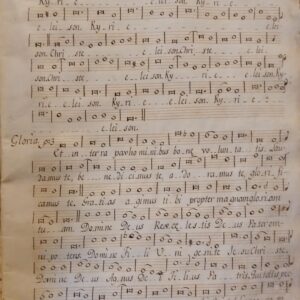 Ky.. ri.. e.. lei.. son. Ky.. ri..
e.. lei.. son. Chri.. ste.. e..
lei.. son. Chri.. ste.. e..
lei son. Chri.. ste.. e.. lei son. Ky..
ri.. e.. lei son. Ky.. ri.. e..
e.. lei son.
Gloria.
Et in ter ra pax ho mi ni bus bo ne vo lun ta tis. Lau
damus te, be ne di ci mus te, a do ra mus te, glo ri fi
camus te. Gra ti as a gimus ti bi propter magnam glo riam
tu.. am. Domine De us Rex ce les tis De us Pa ter om
ni po tens. Domine Fi li V ni ge ni te Je su Chri ste.
Domi ne De us Agnus de i Fi li us Pa tris.